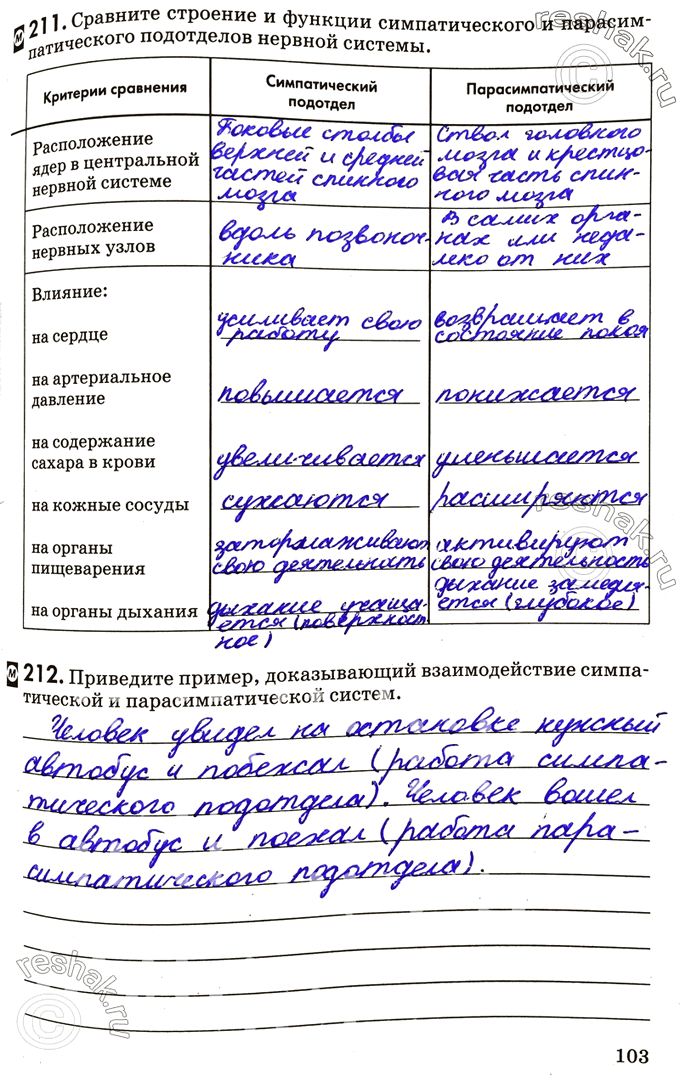 211. Сравните строение и функции симпатического и парасим-
патического подотделов нервной системы.
Критерии сравнения
Симпатический
подотдел
Парасимпатический
подотдел
Расположение
ядер в центральной
нервной системе
Боковые столбы
верхней и средней
частей спинного
мозга
Ствол головного
мозга и крестцо-
вая часть спин-
ного мозга
Расположение
нервных узлов
вдоль позвоноч-
ника
В самих орга-
нах или неда-
леко от них
Влияние:
на сердце
усиливает свою
работу
возвращает в
состояние покоя
на артериальное
давление
повышается
понижается
на содержание
сахара в крови
увеличивается
уменьшается
на кожные сосуды
сужаются
расширяются
на органы
пищеварения
затормаживают
свою деятельность
активируют
свою деятельность
на органы дыхания
дыхание учаща-
ется (поверхност
ное)
дыхание замедл-
ется (глубокое)
212. Приведите пример, доказывающий взаимодействие симпа-
тической и парасимпатической систем.
Человек увидел на остановке нужный
автобус и побежал (работа симпа-
тического подотдела). Человек вошел
в автобус и поехал (работа пара-
симпатического подотдела).
103
reshak.ru
reshak.ru
reshak.ru
reshak.ru